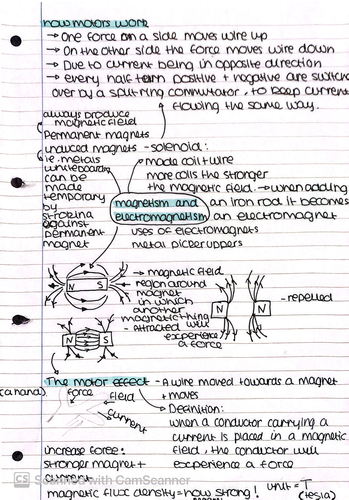 how motors work
→ One force on a side moves wire up
→ On the other side the force moves wire down
→ Due to current being in opposite direction
→ every half turn positive + negative are switch
over by a split ring commutator, to keep current
flowing the same way.
always produce
magnetic field
Permanent magnets
induced magnets
ie. metals
whiteboards
can be
made
temporary
by
stroking
against
permanent
magnet
- solenoid:
made coil + wire
more coils the stronger
the magnetic field. → when adding
an iron rod it becomes
an electromagnet
magnetism and
electromagnetism
uses of electromagnets
metal picker uppers
N S
→ magnetic field
region around
magnet
in which
another
magnetic thing
will
experience
a force
N N
- repelled
N S
- Attracted
The motor effect - A wire moved towards a magnet
+ moves
(a hand)
force
field
current
→ Definition:
when a conductor carrying a
current is placed in a magnetic
field, the conductor will
experience a force
increase force:
stronger magnet +
current
magnetic flux density = how strong!
unit = T
(tesla)
CS Scanned with CamScanner